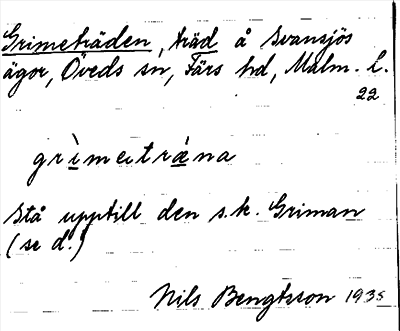 Grimeträden, träd å Svansjös
ägor, Öveds sn, Färs hd, Malm. l.
22
grìmetræna
Stå upptill den s.k. Griman
(se d.)
Nils Bengtsson 1935